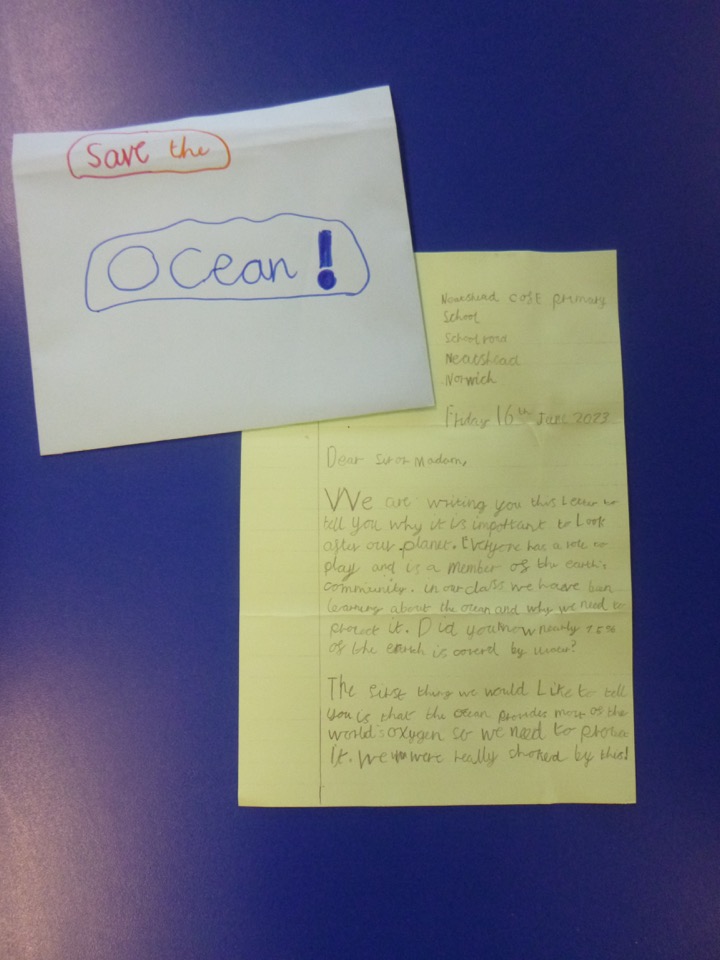 Save the
Ocean!
Neatishead CofE primary
School
School road
Neatishead
Norwich
Friday 16th June 2023
Dear Sir or Madam,
We are writing you this Letter to
tell you why it is important to Look
after our planet. Everyone has a role to
play and is a member of the earth's
community. in our class we have been
learning about the ocean and why we need to
protect it. Did you know nearly 75%
of the earth is coverd by water?
The first thing we would Like to tell
you is that the ocean provides most of the
world's oxygen so we need to protect
it. We were really shoked by this!